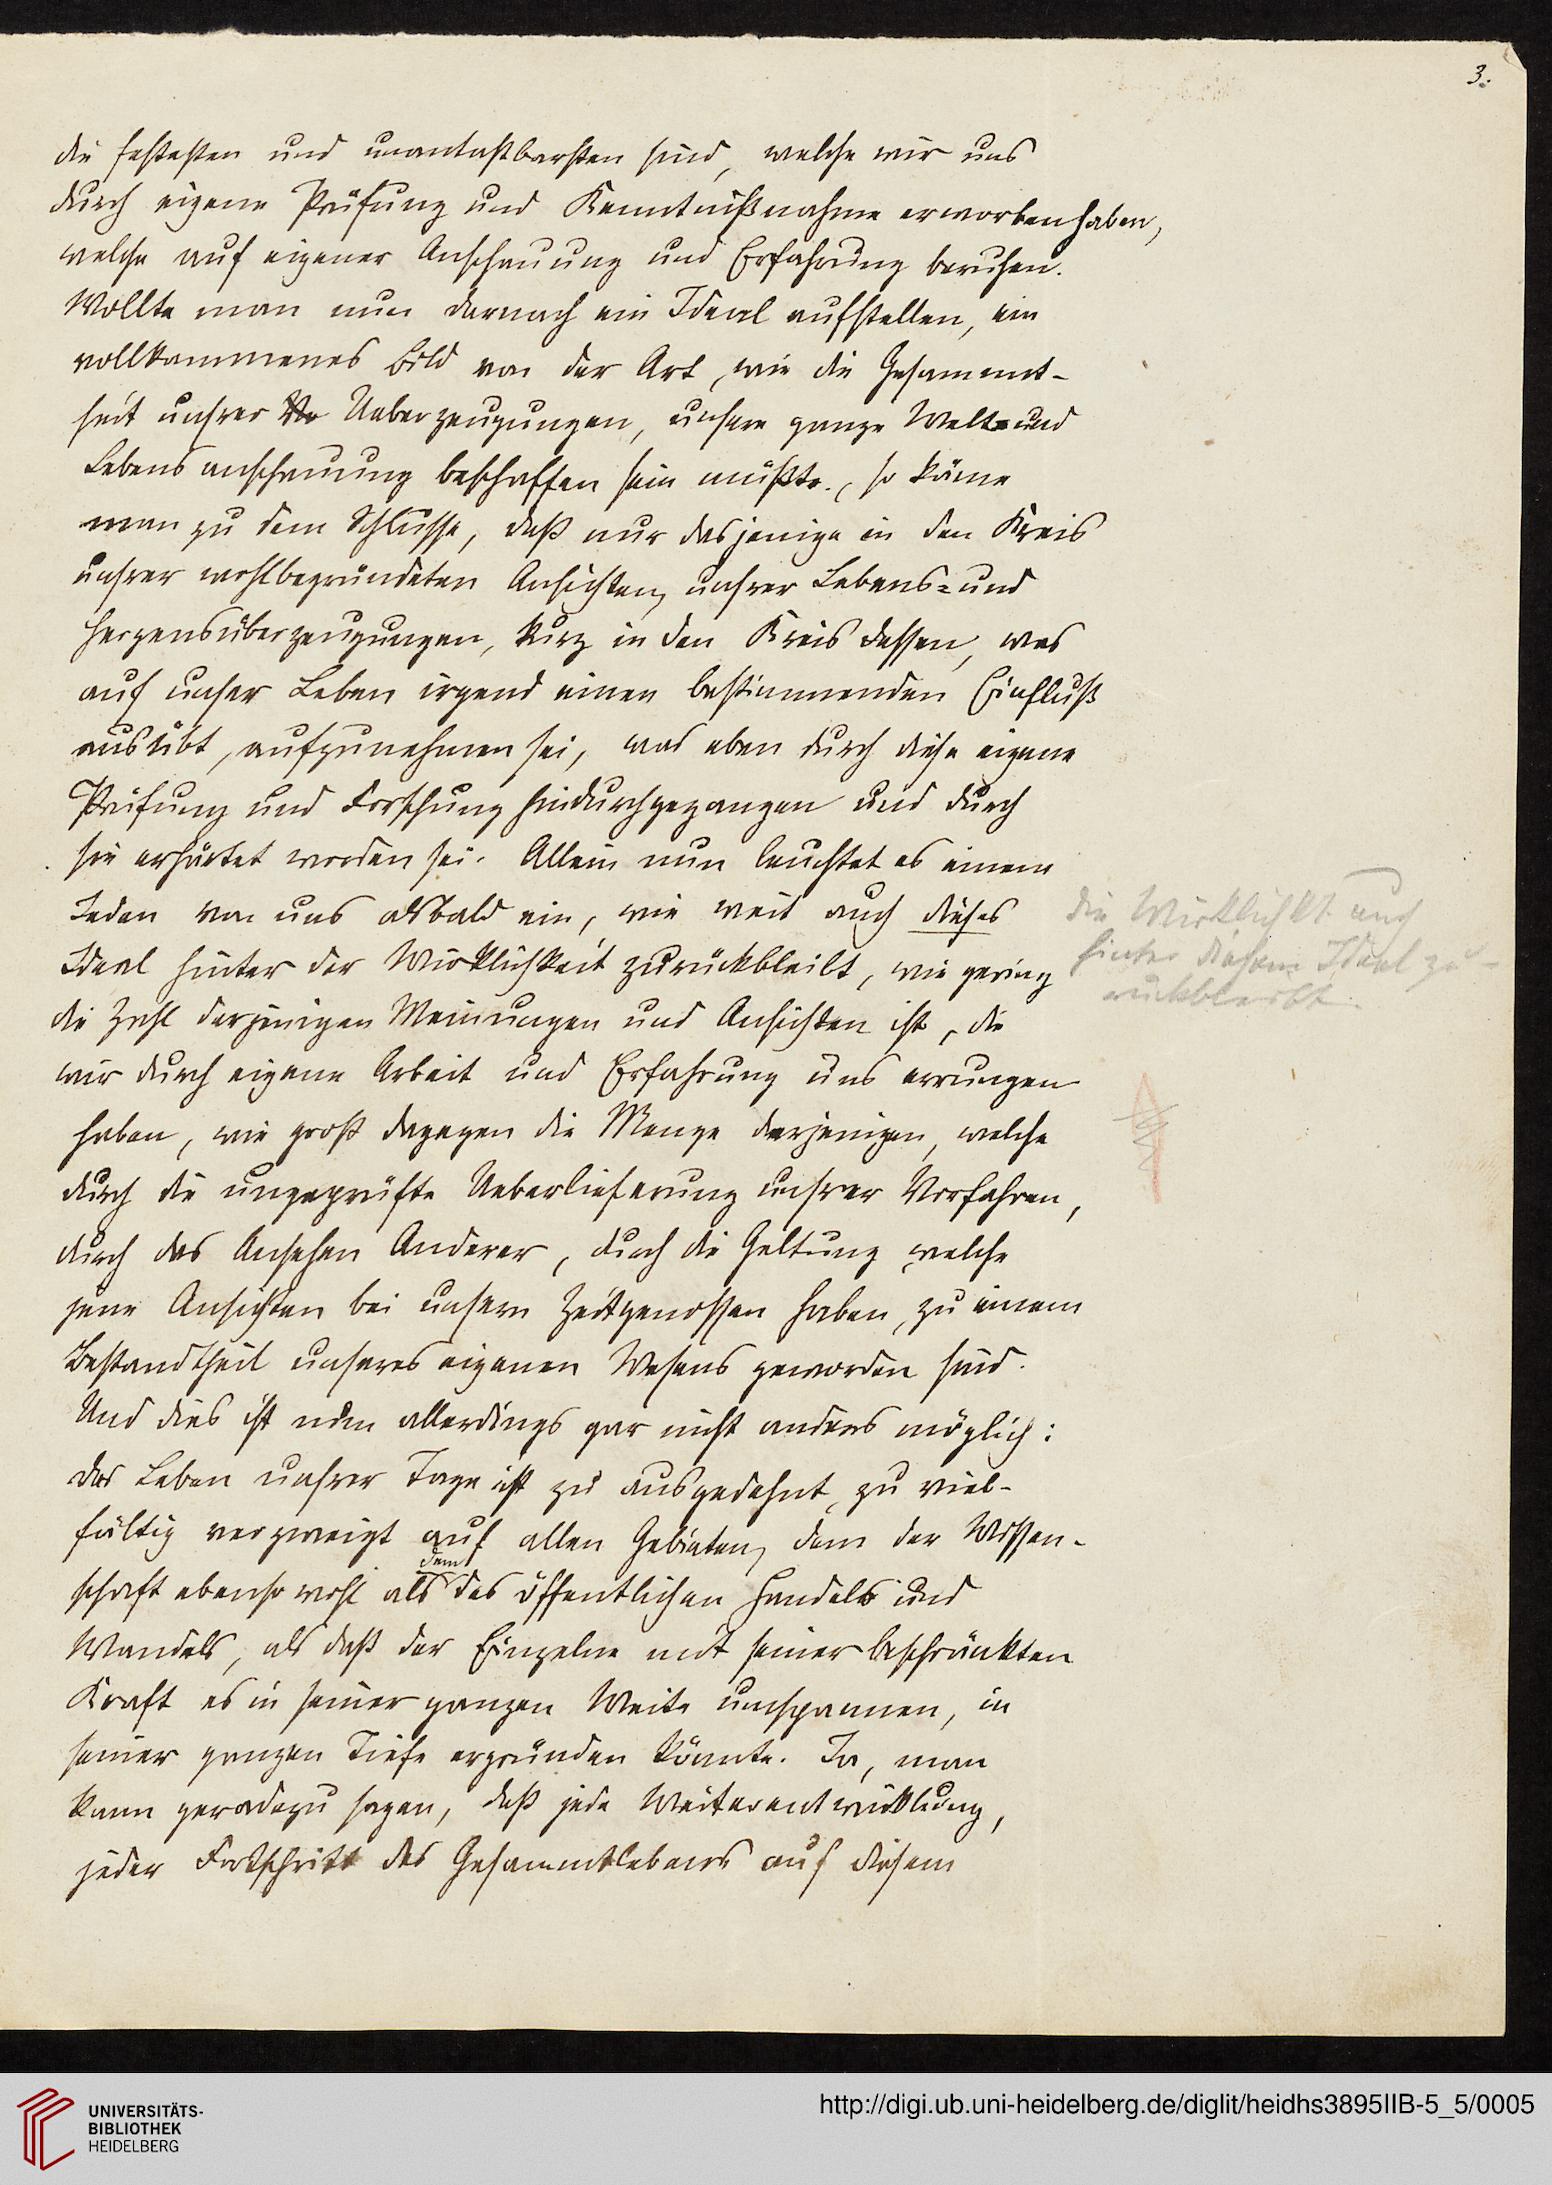 3.
die festesten und unantastbarsten sind, welche wir uns
durch eigene Prüfung und Kenntnißnahme erworben haben,
welche auf eigener Anschauung und Erfahrung beruhen.
Wollte man nun darnach ein Ideal aufstellen, ein
vollkommenes Bild von der Art, wie die Gesammt-
heit unsrer Ueberzeugungen, unsere ganze Welt- und
Lebensanschauung beschaffen sein müßte, so käme
man zu dem Schlusse, daß nur dasjenige in den Kreis
unsrer wohlbegründeten Ansichten, unsrer Lebens- und
Herzensüberzeugungen, kurz in den Kreis dessen, was
auf unser Leben irgend einen bestimmenden Einfluß
ausübt, aufzunehmen sei, was eben durch diese eigene
Prüfung und Forschung hindurchgegangen und durch
sie erhärtet worden sei. Allein nun leuchtet es einem
Jeden von uns alsbald ein, wie weit auch dieses
Ideal hinter der Wirklichkeit zurückbleibt, wie gering
die Wirklichkt. auch
hinter diesem Ideal zu-
rückbleibt.
die Zahl derjenigen Meinungen und Ansichten ist, die
wir durch eigene Arbeit und Erfahrung uns errungen
haben, wie groß dagegen die Menge derjenigen, welche
durch die ungeprüfte Ueberlieferung unsrer Vorfahren,
durch das Ansehen Anderer, durch die Geltung, welche
jene Ansichten bei unsern Zeitgenossen haben, zu einem
Bestandtheil unseres eigenen Wesens geworden sind.
Und dies ist nun allerdings gar nicht anders möglich:
das Leben unsrer Tage ist zu ausgedehnt, zu viel-
fältig verzweigt auf allen Gebieten, dem der Wissen-
schaft ebensowohl als dem des öffentlichen Handels und
Wandels, als daß der Einzelne mit seiner beschränkten
Kraft es in seiner ganzen Weite umspannen, in
seiner ganzen Tiefe ergründen könnte. Ja, man
kann geradezu sagen, daß jede Weiterentwicklung,
jeder Fortschritt des Gesammtlebens auf diesem
UNIVERSITÄTS-
BIBLIOTHEK
HEIDELBERG
http://digi.ub.uni-heidelberg.de/diglit/heidhs3895IIB-5_5/0005